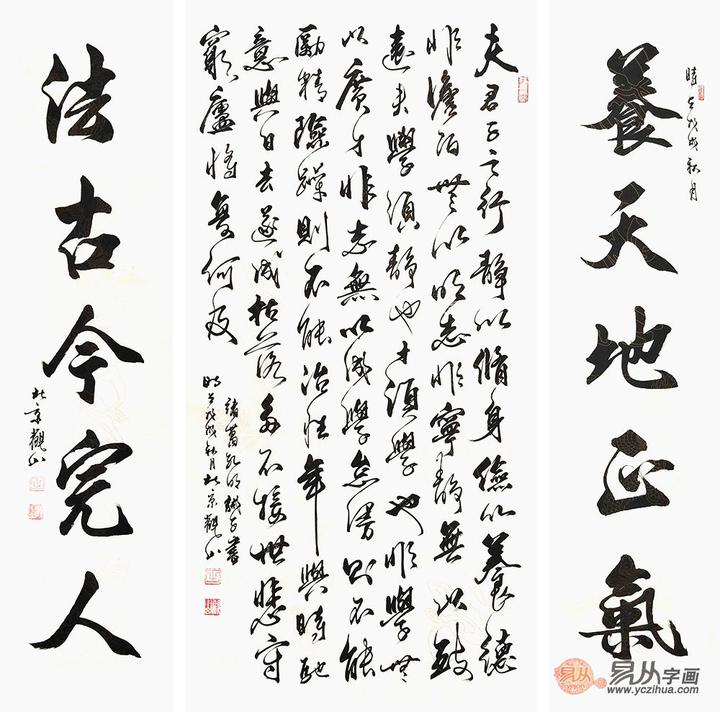 時在戊戌秋月
養天地正氣
夫君子之行靜以脩身儉以養德
非澹泊無以明志非寧靜無以致
遠夫學須靜也才須學也非學無
以廣才非志無以成學怠慢則不能
勵精險躁則不能治性年與時馳
意與日去遂成枯落多不接世悲守
窮廬將復何及
諸葛孔明誡子書
時在戊戌秋月北京觀山
法古今完人
北京觀山
易从
易从字画
www.yczihua.com